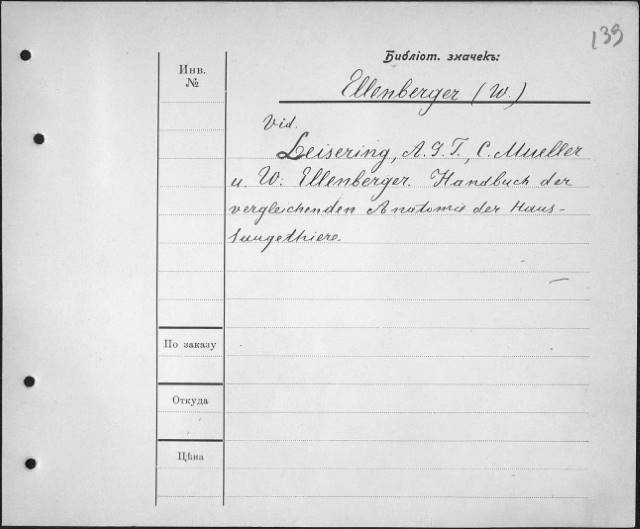 139
Библіот. значекъ:
Инв.
№
Ellenberger (W.)
Vid.
Leisering, A. G. T., C. Mueller
u. W. Ellenberger. Handbuch der
vergleichenden Anatomie der Haus-
Saugethiere.
По заказу
Откуда
Цѣна